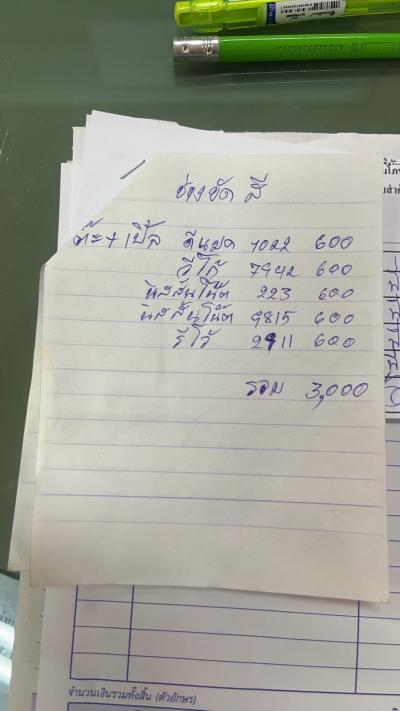 ช่างขัด สี
ต๊ะ+เปิ้ล ดีแมค 1022 600
วีโก้ 7942 600
นิสสันโน๊ต 223 600
นิสสันโน๊ต 9815 600
รีโว้ 2911 600
รวม 3,000
จำนวนเงินรวมทั้งสิ้น (ตัวอักษร)